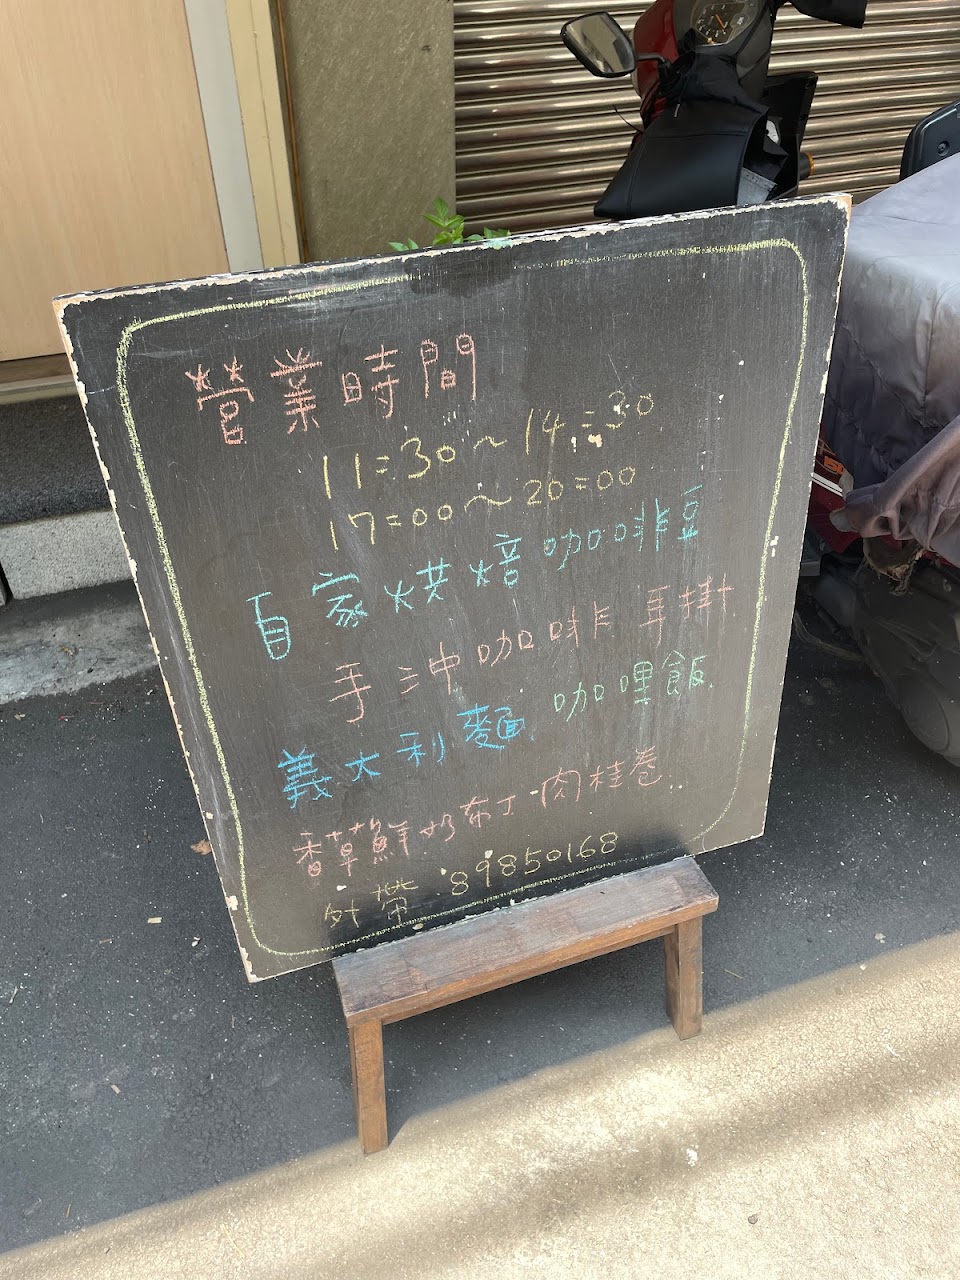 營業時間
11:30～14:30
17:00～20:00
自家烘焙咖啡豆
手沖咖啡 耳掛
義大利麵 咖哩飯
香草鮮奶布丁 肉桂卷
外帶 89850168